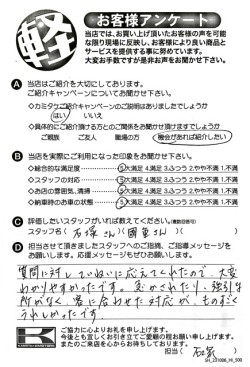 軽
お客様アンケート
当店では、お買い上げ頂いたお客様の声を可能
な限り現場に反映し、お客様により良い商品と
サービスを提供する事に努めています。
大変お手数ですが是非お声をお聞かせ下さい。
A 当店はご紹介を大切にしております。
ご紹介キャンペーンについてお聞かせ下さい。
◇カミタケご紹介キャンペーンのご説明はありましたでしょうか
はい いいえ
◇具体的にご紹介頂ける方との関係をお聞かせ頂けますでしょうか
ご親族 ご友人 職場の方 機会があれば紹介したい
B 当店を実際にご利用になった印象をお聞かせ下さい。
◇総合的な満足度 5.大満足 4.満足 3.ふつう 2.やや不満 1.不満
◇スタッフの対応 5.大満足 4.満足 3.ふつう 2.やや不満 1.不満
◇お店の雰囲気、清掃 5.大満足 4.満足 3.ふつう 2.やや不満 1.不満
◇納車時のお車の状態 5.大満足 4.満足 3.ふつう 2.やや不満 1.不満
C 評価したいスタッフがいれば教えてください。(複数回答可)
スタッフ名( 石塚さん )( 國重さん )( )
D 担当させて頂きましたスタッフへのご指摘、ご指導メッセージを
お願いします。応援メッセージもお願いします。
質問に対してていねいに応えてくれたので、大変
わかりやすかったです。急かされたり、強引な
所がなく、客に合わせた対応が、ものすごく
うれしかったです。
ご協力に心よりお礼を申し上げます。
今後とも宜しくお引き立てご愛顧の程お願い申し上げます。
またのご来店を心からお待ちしております。
担当( 石塚 )